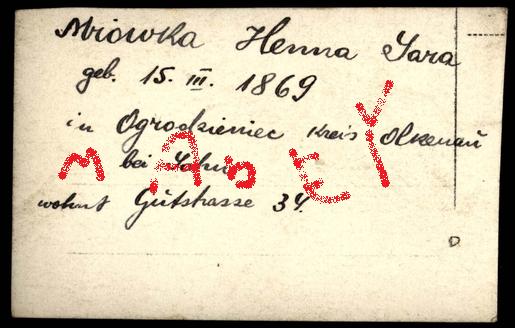 Mrowka Henna Sara
geb. 15. III. 1869
in Ogrodzieniec Kreis Olkenau
bei Sohn
wohnt Gutstrasse 34.
MADEY
D